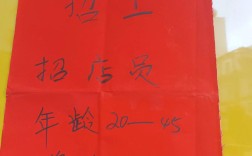 招工
招店员
年龄20—45